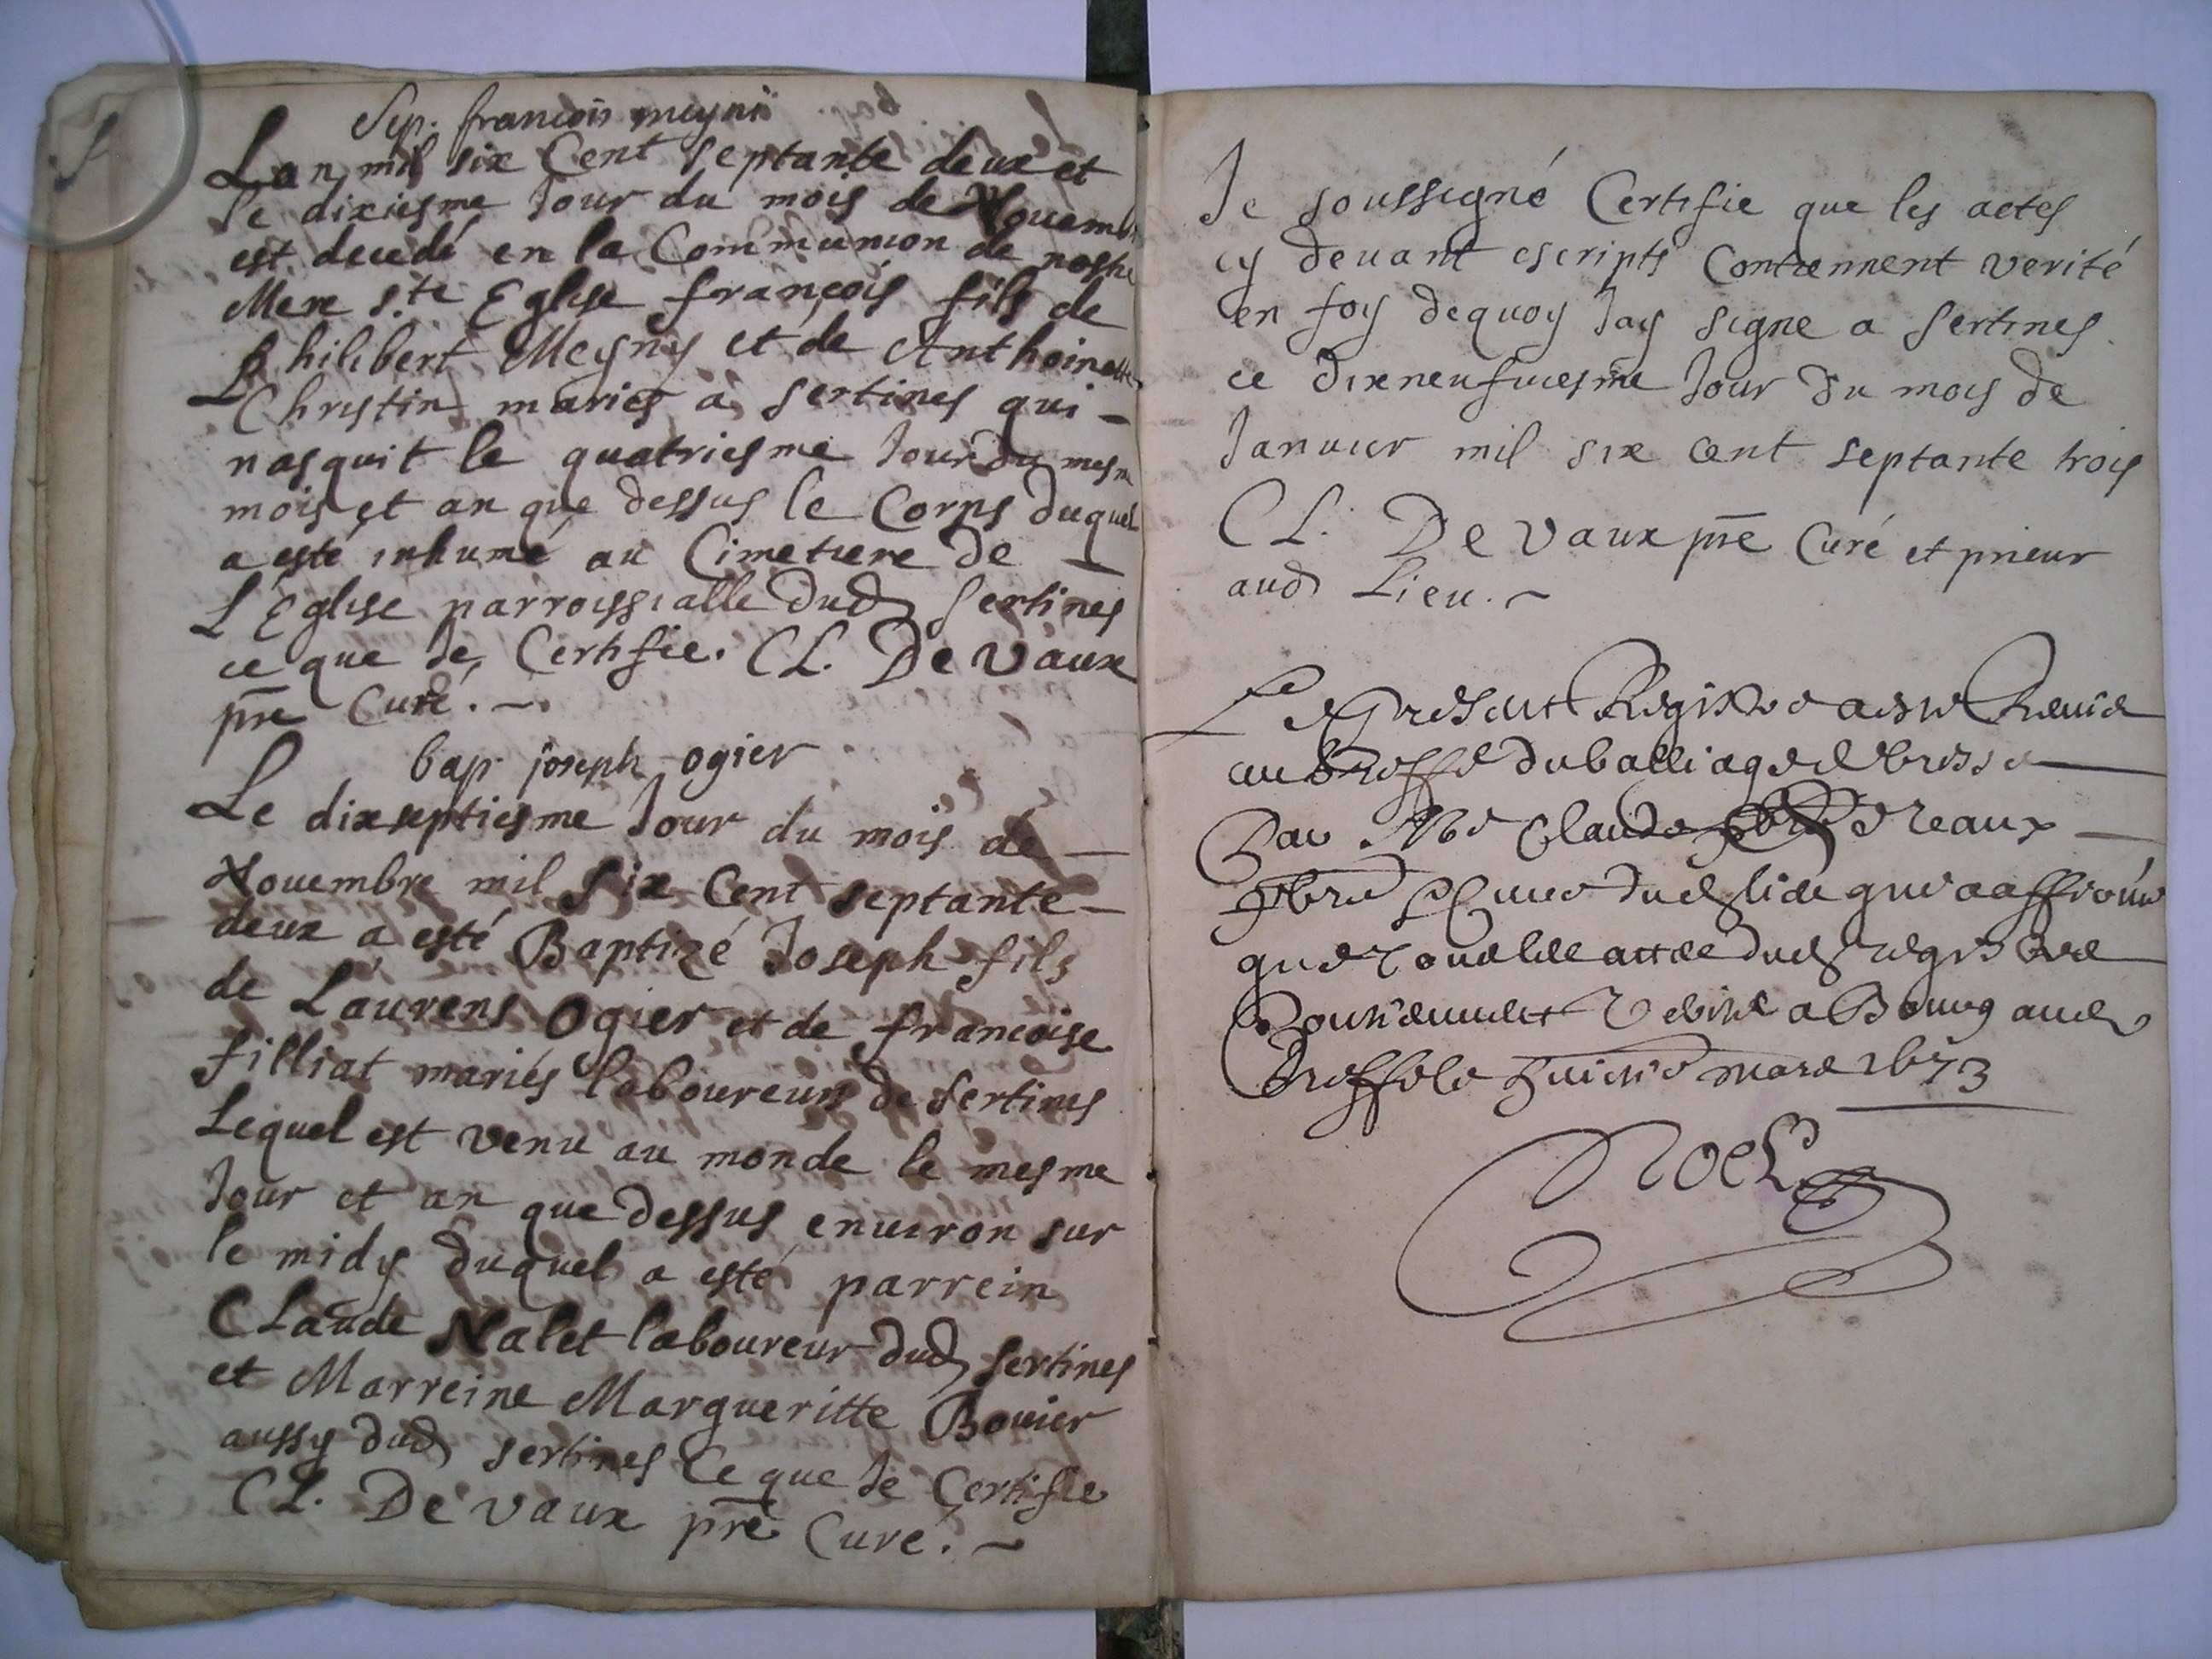 Sep. françois meyni
Lan mil six Cent septante deux et
le dixiesme Jour du mois de Nouemb
est decedé en la Communion de nostre
Mere s.te Eglise françois fils de
Philibert Meyny et de Anthoinette
Christin mariés a sertines qui -
nasquit le quatriesme Jour du mesm
mois et an que dessus le Corps duquel
a esté inhumé au Cimetiere de
L'Eglise parroissialle dud sertines
ce que Je Certifie. CL. De Vaux
pre Curé. -
bap. joseph ogier
Le dixseptiesme Jour du mois de -
Nouembre mil six Cent septante -
deux a esté Baptizé Joseph fils
de Laurens Ogier et de francoise
filliat mariés laboureurs de sertines
Lequel est venu au monde le mesme
Jour et an que dessus enuiron sur
le midy duquel a esté parrein
CLaude Nalet laboureur dud sertines
et Marreine Margueritte Bouier
aussy dud sertines Ce que Je Certifie
CL. De Vaux pre Curé. -
Je soussigné Certifie que les actes
cy deuant escripts Contiennent verité
en foy dequoy Jay signe a sertines
ce dixneufuiesme Jour du mois de
Januier mil six cent septante trois
CL. De Vaux pre Curé et prieur
aud Lieu. -
Le present Registre a este Remis
au Greffe du balliage de bresse
Par Mre Claude Deuaux
pbre Cure dud lieu qui a affirmé
que tous les actes dud registre
Contiennent Verité a Bourg aud
Greffe le mars 1673
Noel